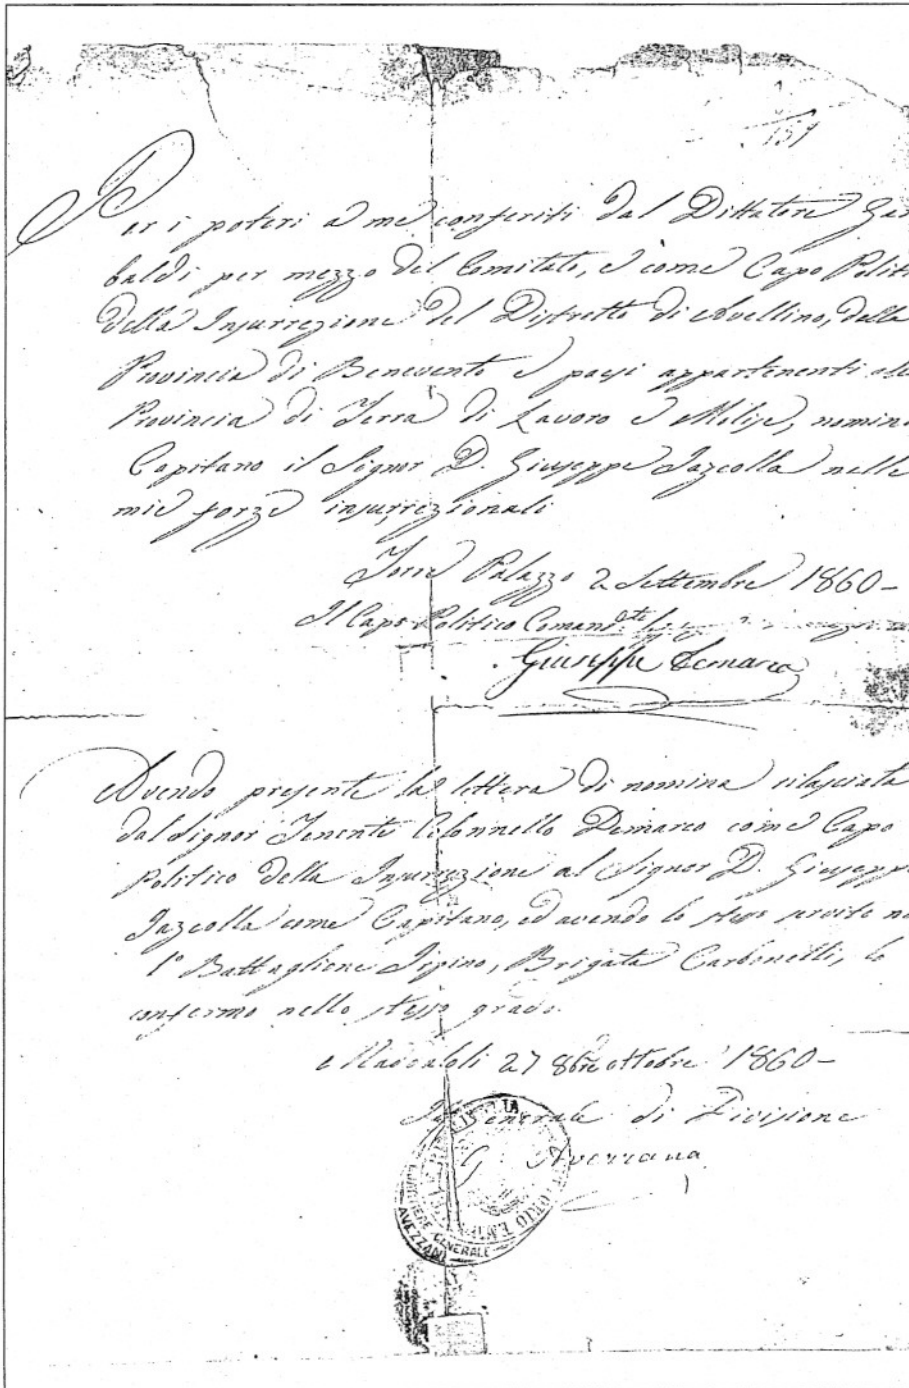 151
Per i poteri a me conferiti dal Dittatore Gar
baldi per mezzo del Comitato, e come Capo Politi
della Insurrezione del Distretto di Avellino, della
Provincia di Benevento e paesi appartenenti alle
Provincia di Terra di Lavoro e Molise, nomin
Capitano il Signor D. Giuseppe Iazeolla nelle
mie forze insurrezionali
Torre Palazzo 2 Settembre 1860-
Il Capo Politico Comand.te
Giuseppe Demarco
Avendo presente la lettera di nomina rilasciata
dal Signor Tenente Colonnello Demarco come Capo
Politico della Insurrezione al Signor D. Giusepp
Iazeolla come Capitano, ed avendo lo stesso servito n
1º Battaglione Irpino, Brigata Carbonelli, lo
confermo nello stesso grado.
27 8bre ottobre 1860-
Il Generale di Divisione
G. Avezzana
QUARTIERE GENERALE
AVEZZANA